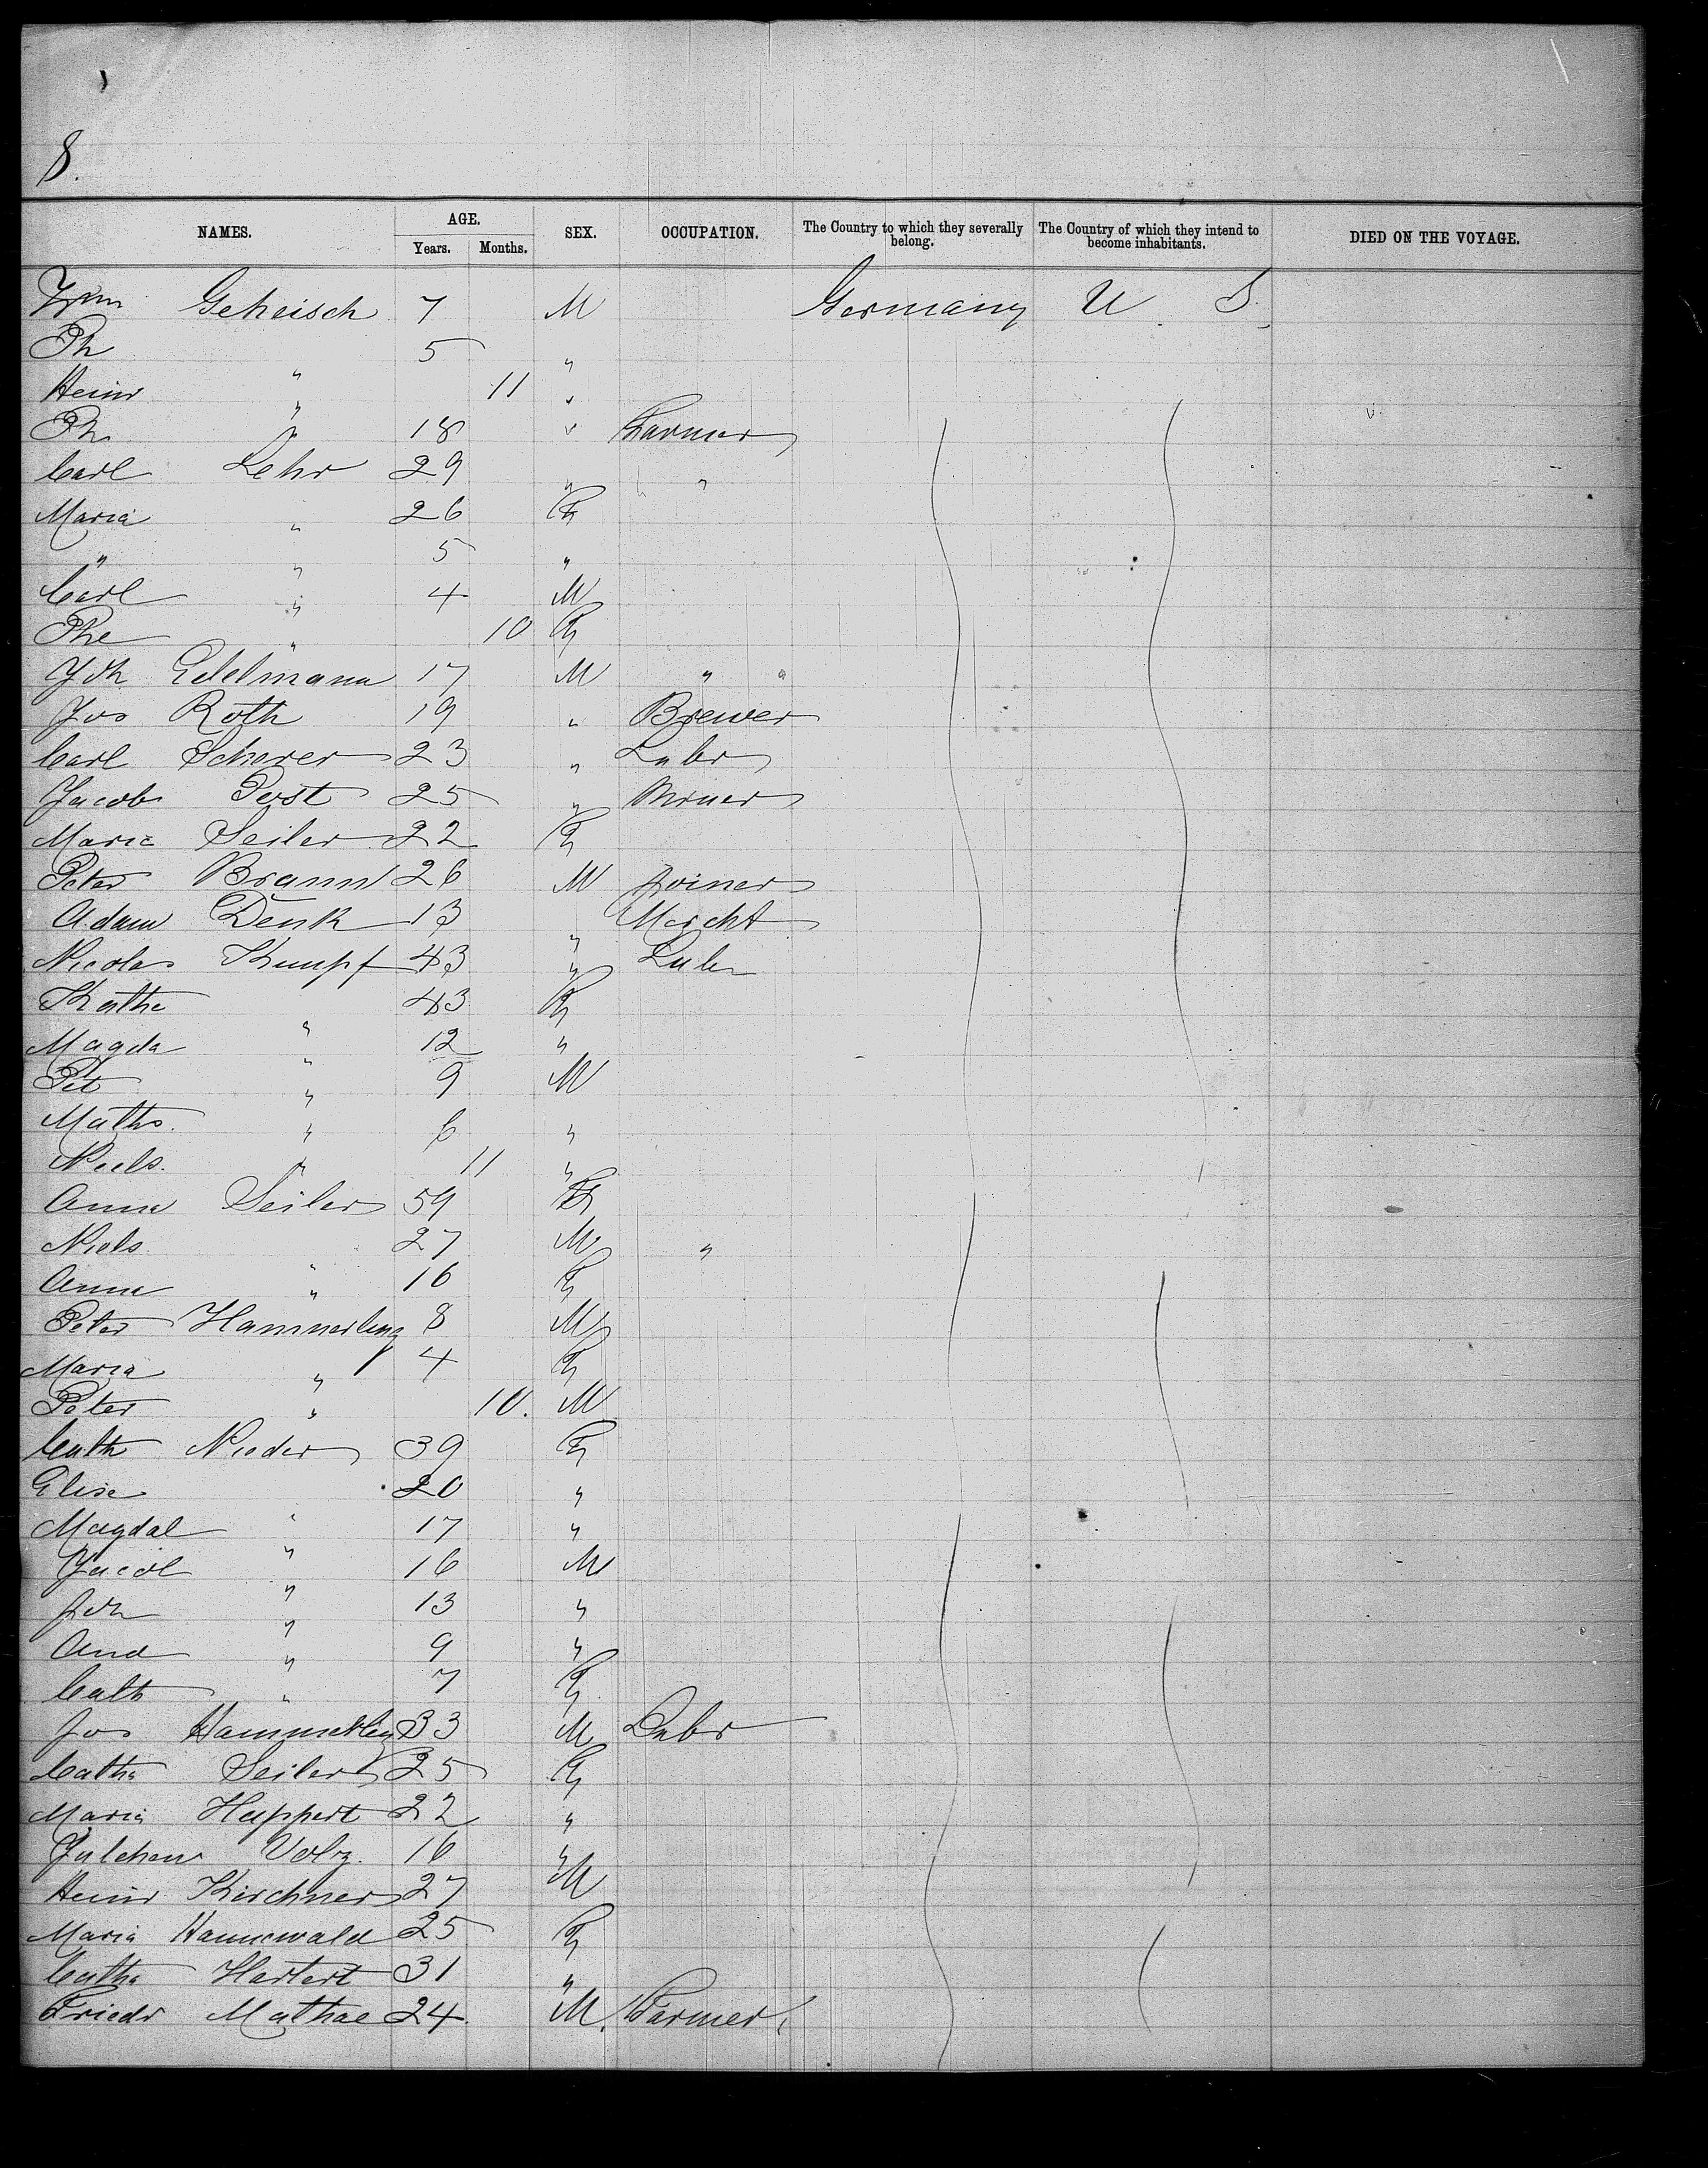 8.
NAMES. AGE. Years. Months. SEX. OCCUPATION. The Country to which they severally belong. The Country of which they intend to become inhabitants. DIED ON THE VOYAGE.
Geheisch 7 M Germany U. S.
Ph " 5 "
Heinr " 11 "
Ph " 18 " Farmer
Carl Lehr 29 " "
Maria " 26 F
" " 5 "
Carl " 4 M
Phe " 10 F
Joh Edelmann 17 M "
Jos Roth 19 " Brewer
Carl Scherer 23 " Labr
Jacob Post 25 " Miner
Maria Seiler 22 F
Peter Braun 26 M Joiner
Adam Denk 13 " Mercht
Nicolas Kumpf 43 " Labr
Kathe " 43 F
Magda " 12 "
Pet " 9 M
Maths. " 6 "
Nicls. " 11 "
Anna Seiler 59 F
Nicls. " 27 M "
Anna " 16 F
Peter Hammerling 8 M
Maria " 4 F
Peter " 10. M
Cath Nieder 39 F
Elise " 20 "
Magdal " 17 "
Jacob " 16 M
Joh " 13 "
And " 9 "
Cath " 7 F
Jos Hammerling 33 M Labr
Catha Seiler 25 F
Maria Huppert 22 "
Julchen Volz. 16 "
Heinr Kirchner 27 M
Maria Hannewald 25 F
Catha Hartert 31 "
Friedr Mathae 24. M. Farmer